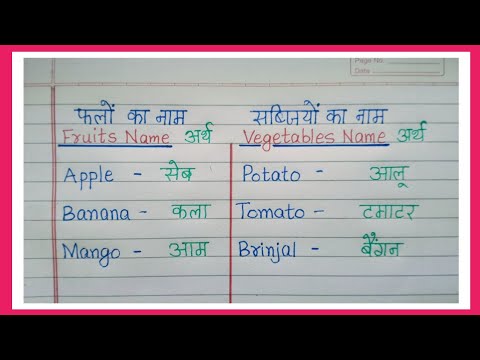 Page No.
Date
फलों का नाम सब्जियों का नाम
Fruits Name अर्थ Vegetables Name अर्थ
Apple - सेब Potato - आलू
Banana - कला Tomato - टमाटर
Mango - आम Brinjal - बैंगन